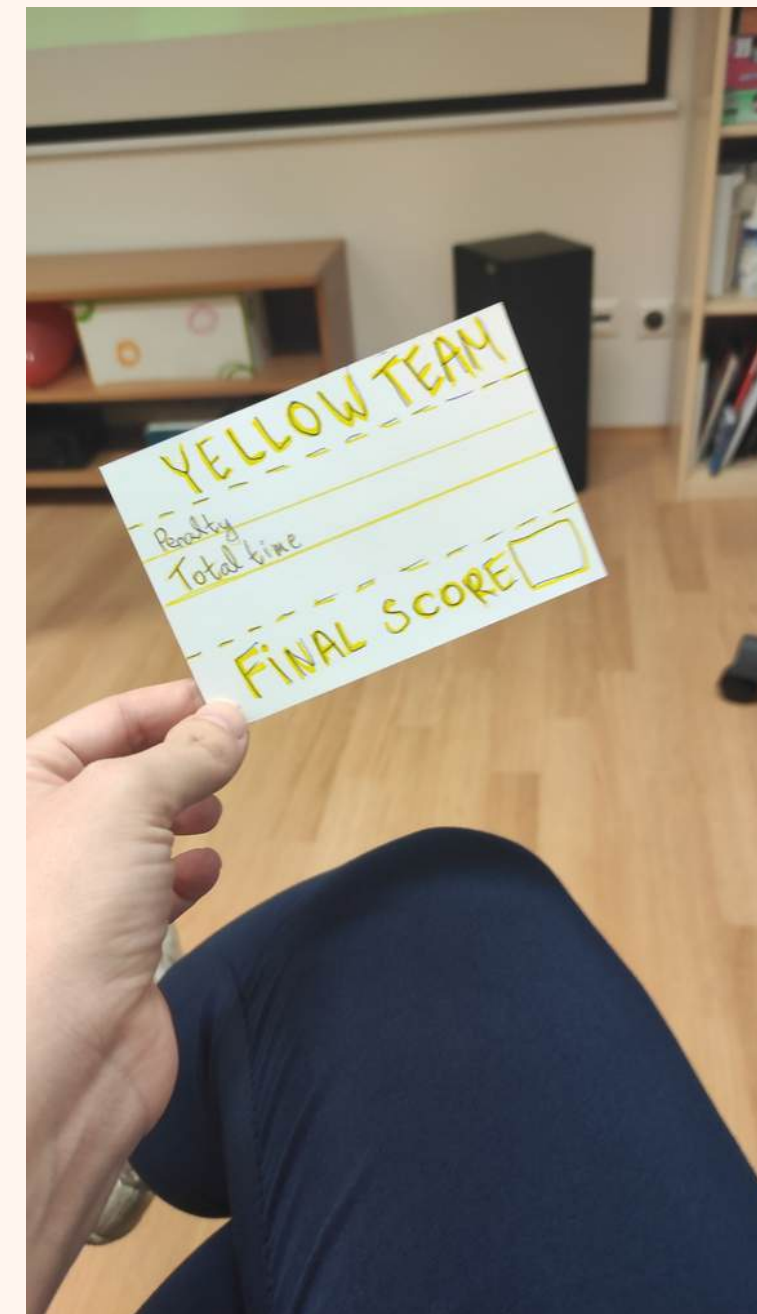 YELLOW TEAM
Penalty
Total time
FiNAL SCORE